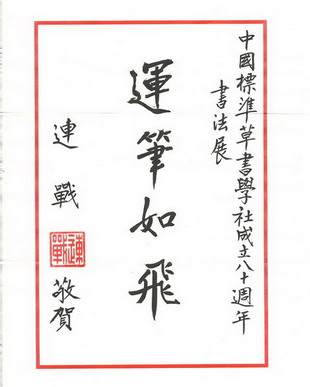 中國標準草書學社成立八十週年
書法展
運筆如飛
連戰
敬賀